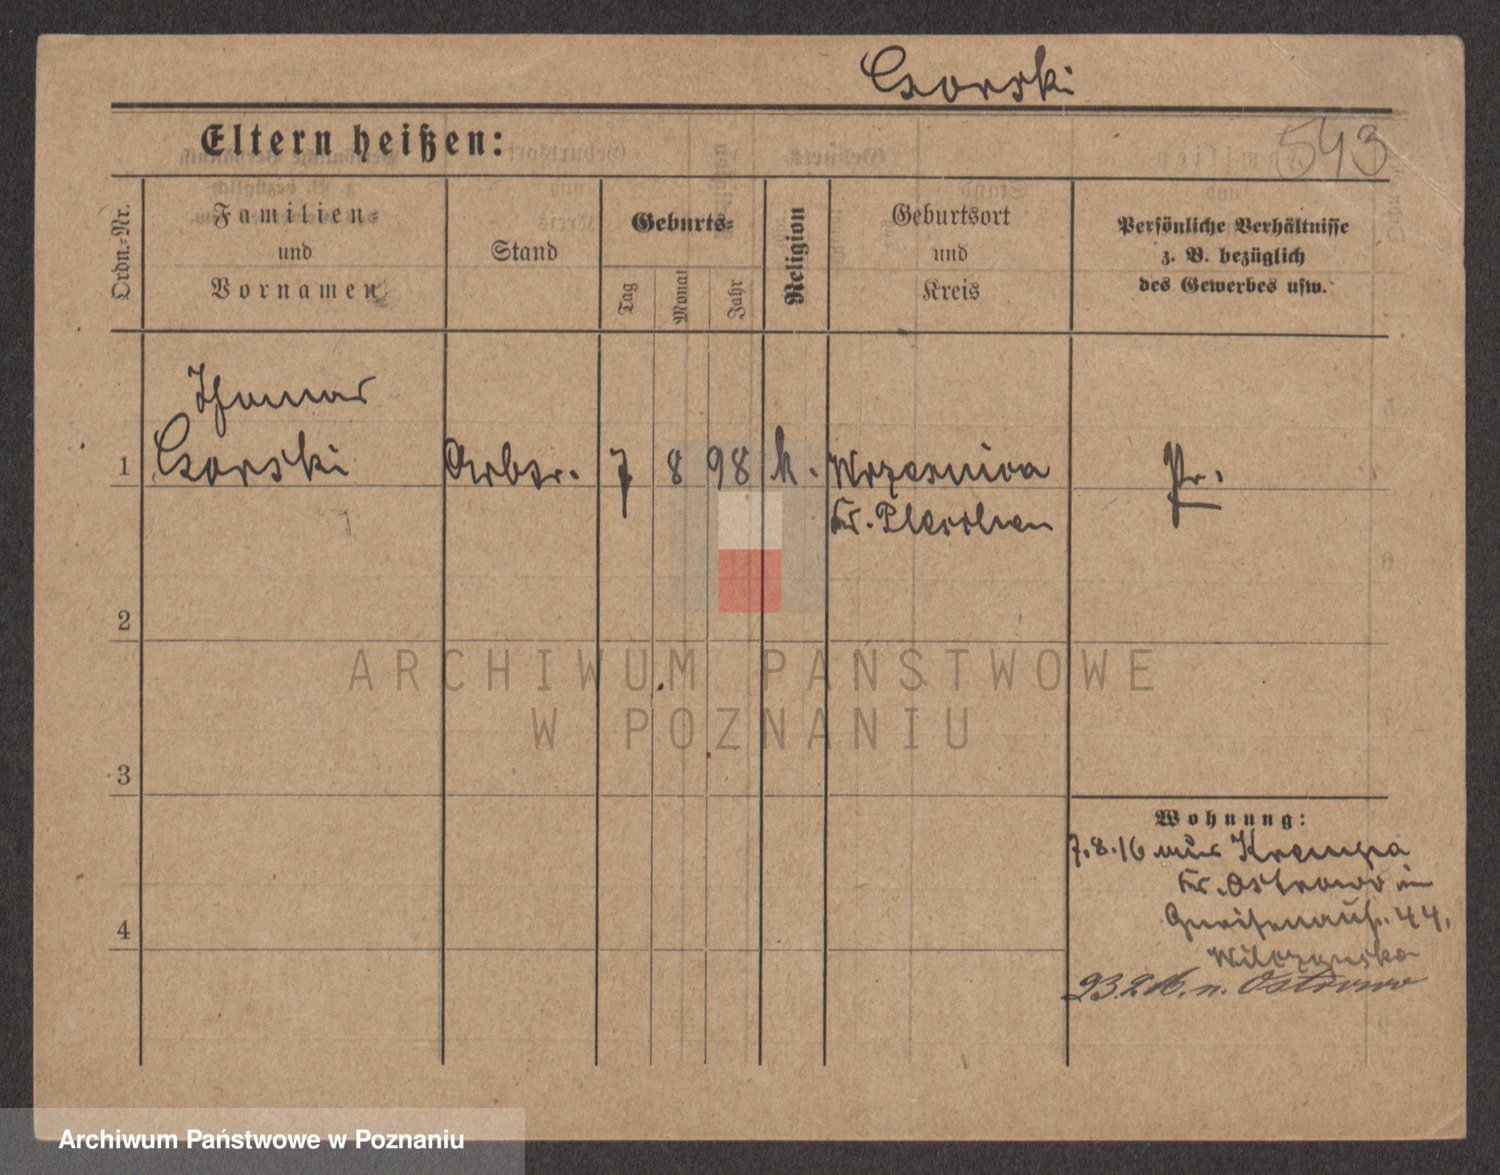 Gorski
543
Eltern heißen:
Ordn.-Nr.
Familien-
und
Vornamen
Stand
Geburts-
Tag
Monat
Jahr
Religion
Geburtsort
und
Kreis
Persönliche Verhältnisse
z. B. bezüglich
des Gewerbes usw.
Thomas
1 Gorski Arbtr. 7 8 98 k. Wrzesnica Pr.
Kr. Pleschen
2
3
4
Wohnung:
7.8.16 aus Krempa
Kr. Ostrowo in
Gneisenaustr. 44.
23.2. n. Ostrowo
ARCHIWUM PAŃSTWOWE
W POZNANIU
Archiwum Państwowe w Poznaniu